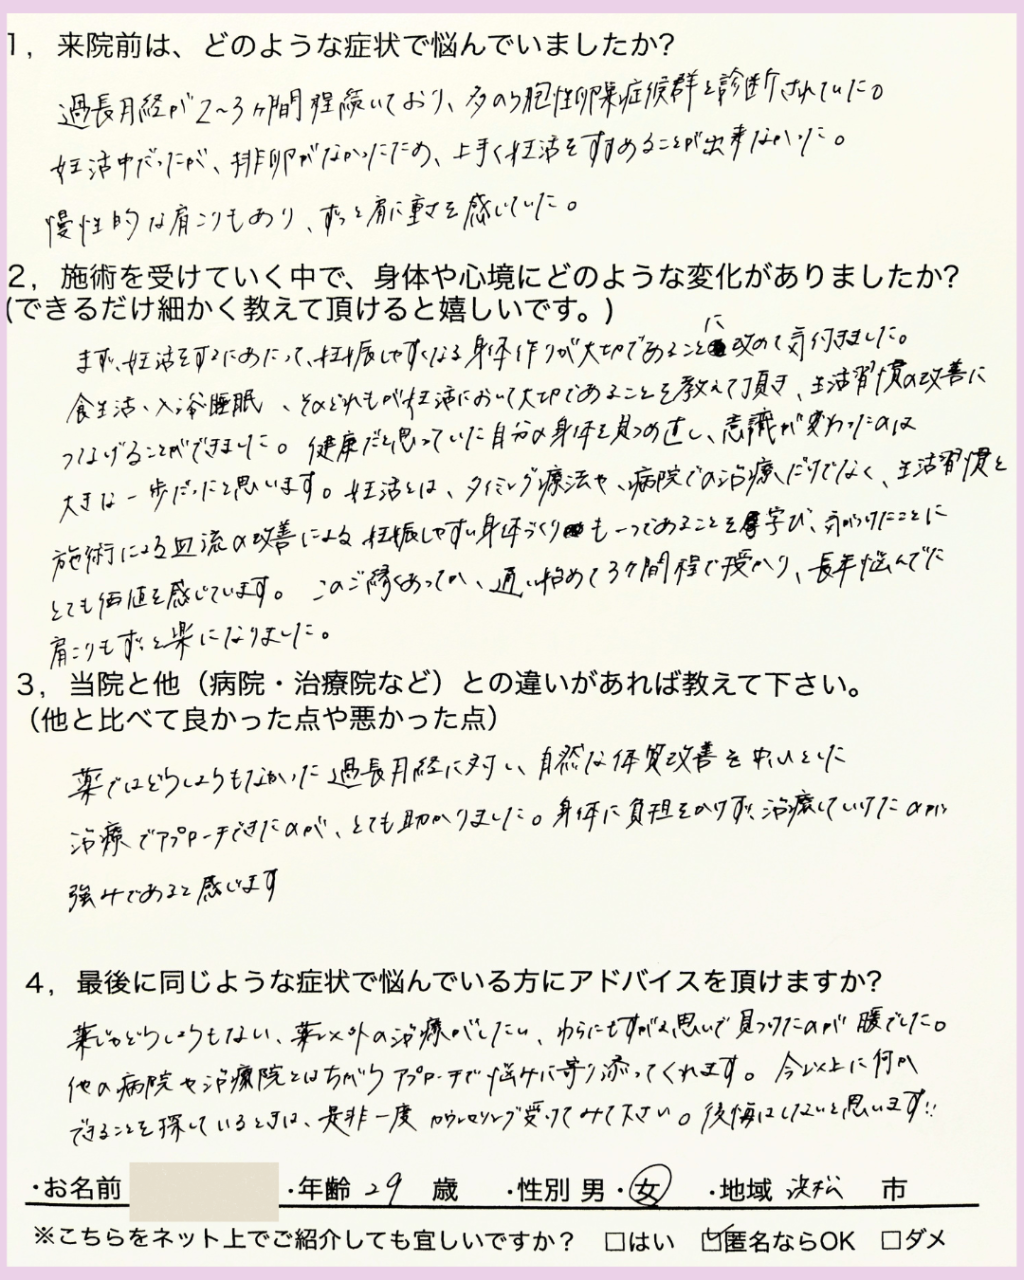 1，来院前は、どのような症状で悩んでいましたか?
過長月経が2～3ヶ月間程続いており、多のう胞性卵巣症候群と診断されていた。
妊活中だったが、排卵がなかったため、上手く妊活をすすめることが出来なかった。
慢性的な肩こりもあり、ずっと肩に重さを感じていた。
2，施術を受けていく中で、身体や心境にどのような変化がありましたか?
(できるだけ細かく教えて頂けると嬉しいです。)
まず、妊活をするにあたって、妊娠しやすくなる身体作りが大切であることに改めて気付きました。
食生活、入浴、睡眠、そのどれもが妊活において大切であることを教えて頂き、生活習慣の改善に
つなげることができました。健康だと思っていた自分の身体を見つめ直し、意識が変わったのは
大きな一歩だったと思います。妊活とは、タイミング療法や、病院での治療だけでなく、生活習慣と
施術による血流の改善による妊娠しやすい身体づくりも一つであることを学び、気がつけたことに
とても価値を感じています。このご縁あってか、通い始めて3ヶ月間程で授かり、長年悩んでた
肩こりもずっと楽になりました。
3，当院と他（病院・治療院など）との違いがあれば教えて下さい。
（他と比べて良かった点や悪かった点）
薬ではどうしようもなかった過長月経に対し、自然な体質改善を中心とした
治療でアプローチできたのが、とても助かりました。身体に負担をかけず、治療していけたのが
強みであると感じます
4，最後に同じような症状で悩んでいる方にアドバイスを頂けますか?
薬じゃどうしようもない、薬以外の治療がしたい、わらにもすがる思いで見つけたのが 腰でした。
他の病院や治療院とはちがうアプローチで悩みに寄り添ってくれます。今以上に何か
できることを探しているときは、是非一度カウンセリング受けてみて下さい。後悔はしないと思います!!
・お名前 ・年齢 29 歳 ・性別 男・女 ・地域 浜松 市
※こちらをネット上でご紹介しても宜しいですか？ □はい ☑匿名ならOK □ダメ